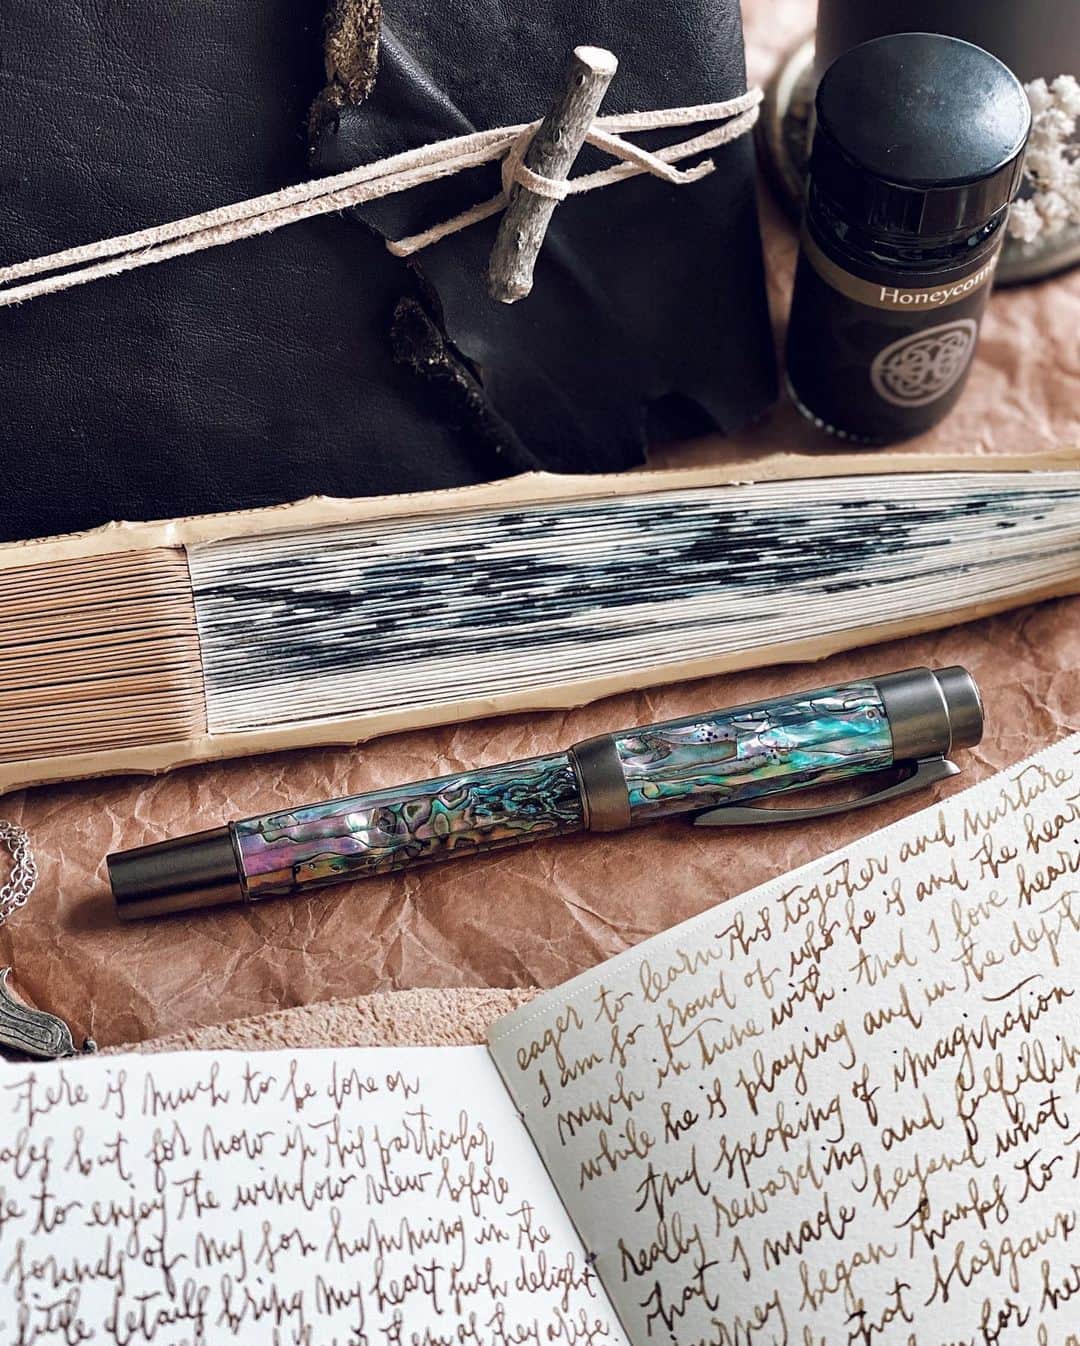 Honeycom
eager to learn this together and nurture
I am so proud of who he is and the heart
much in tune with. And I love heari
while he is playing and in the dept
And speaking of imagination
really rewarding and fulfilling
that I made beyond what
journey began thanks to
that Margaux
for her
There is much to be done on
but for now in this particular
to enjoy the window view before
sounds of my son humming in the
little details bring my heart such delight
them as they arise.